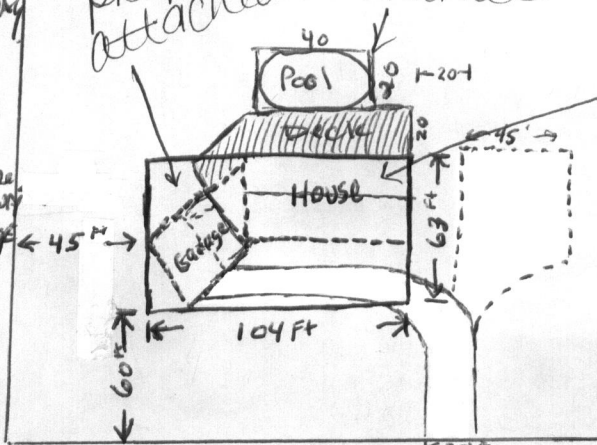 attached
40
Pool
20
20
Deck
20
45'
House
63 Ft
Garage
45 Ft
104 Ft
60 Ft